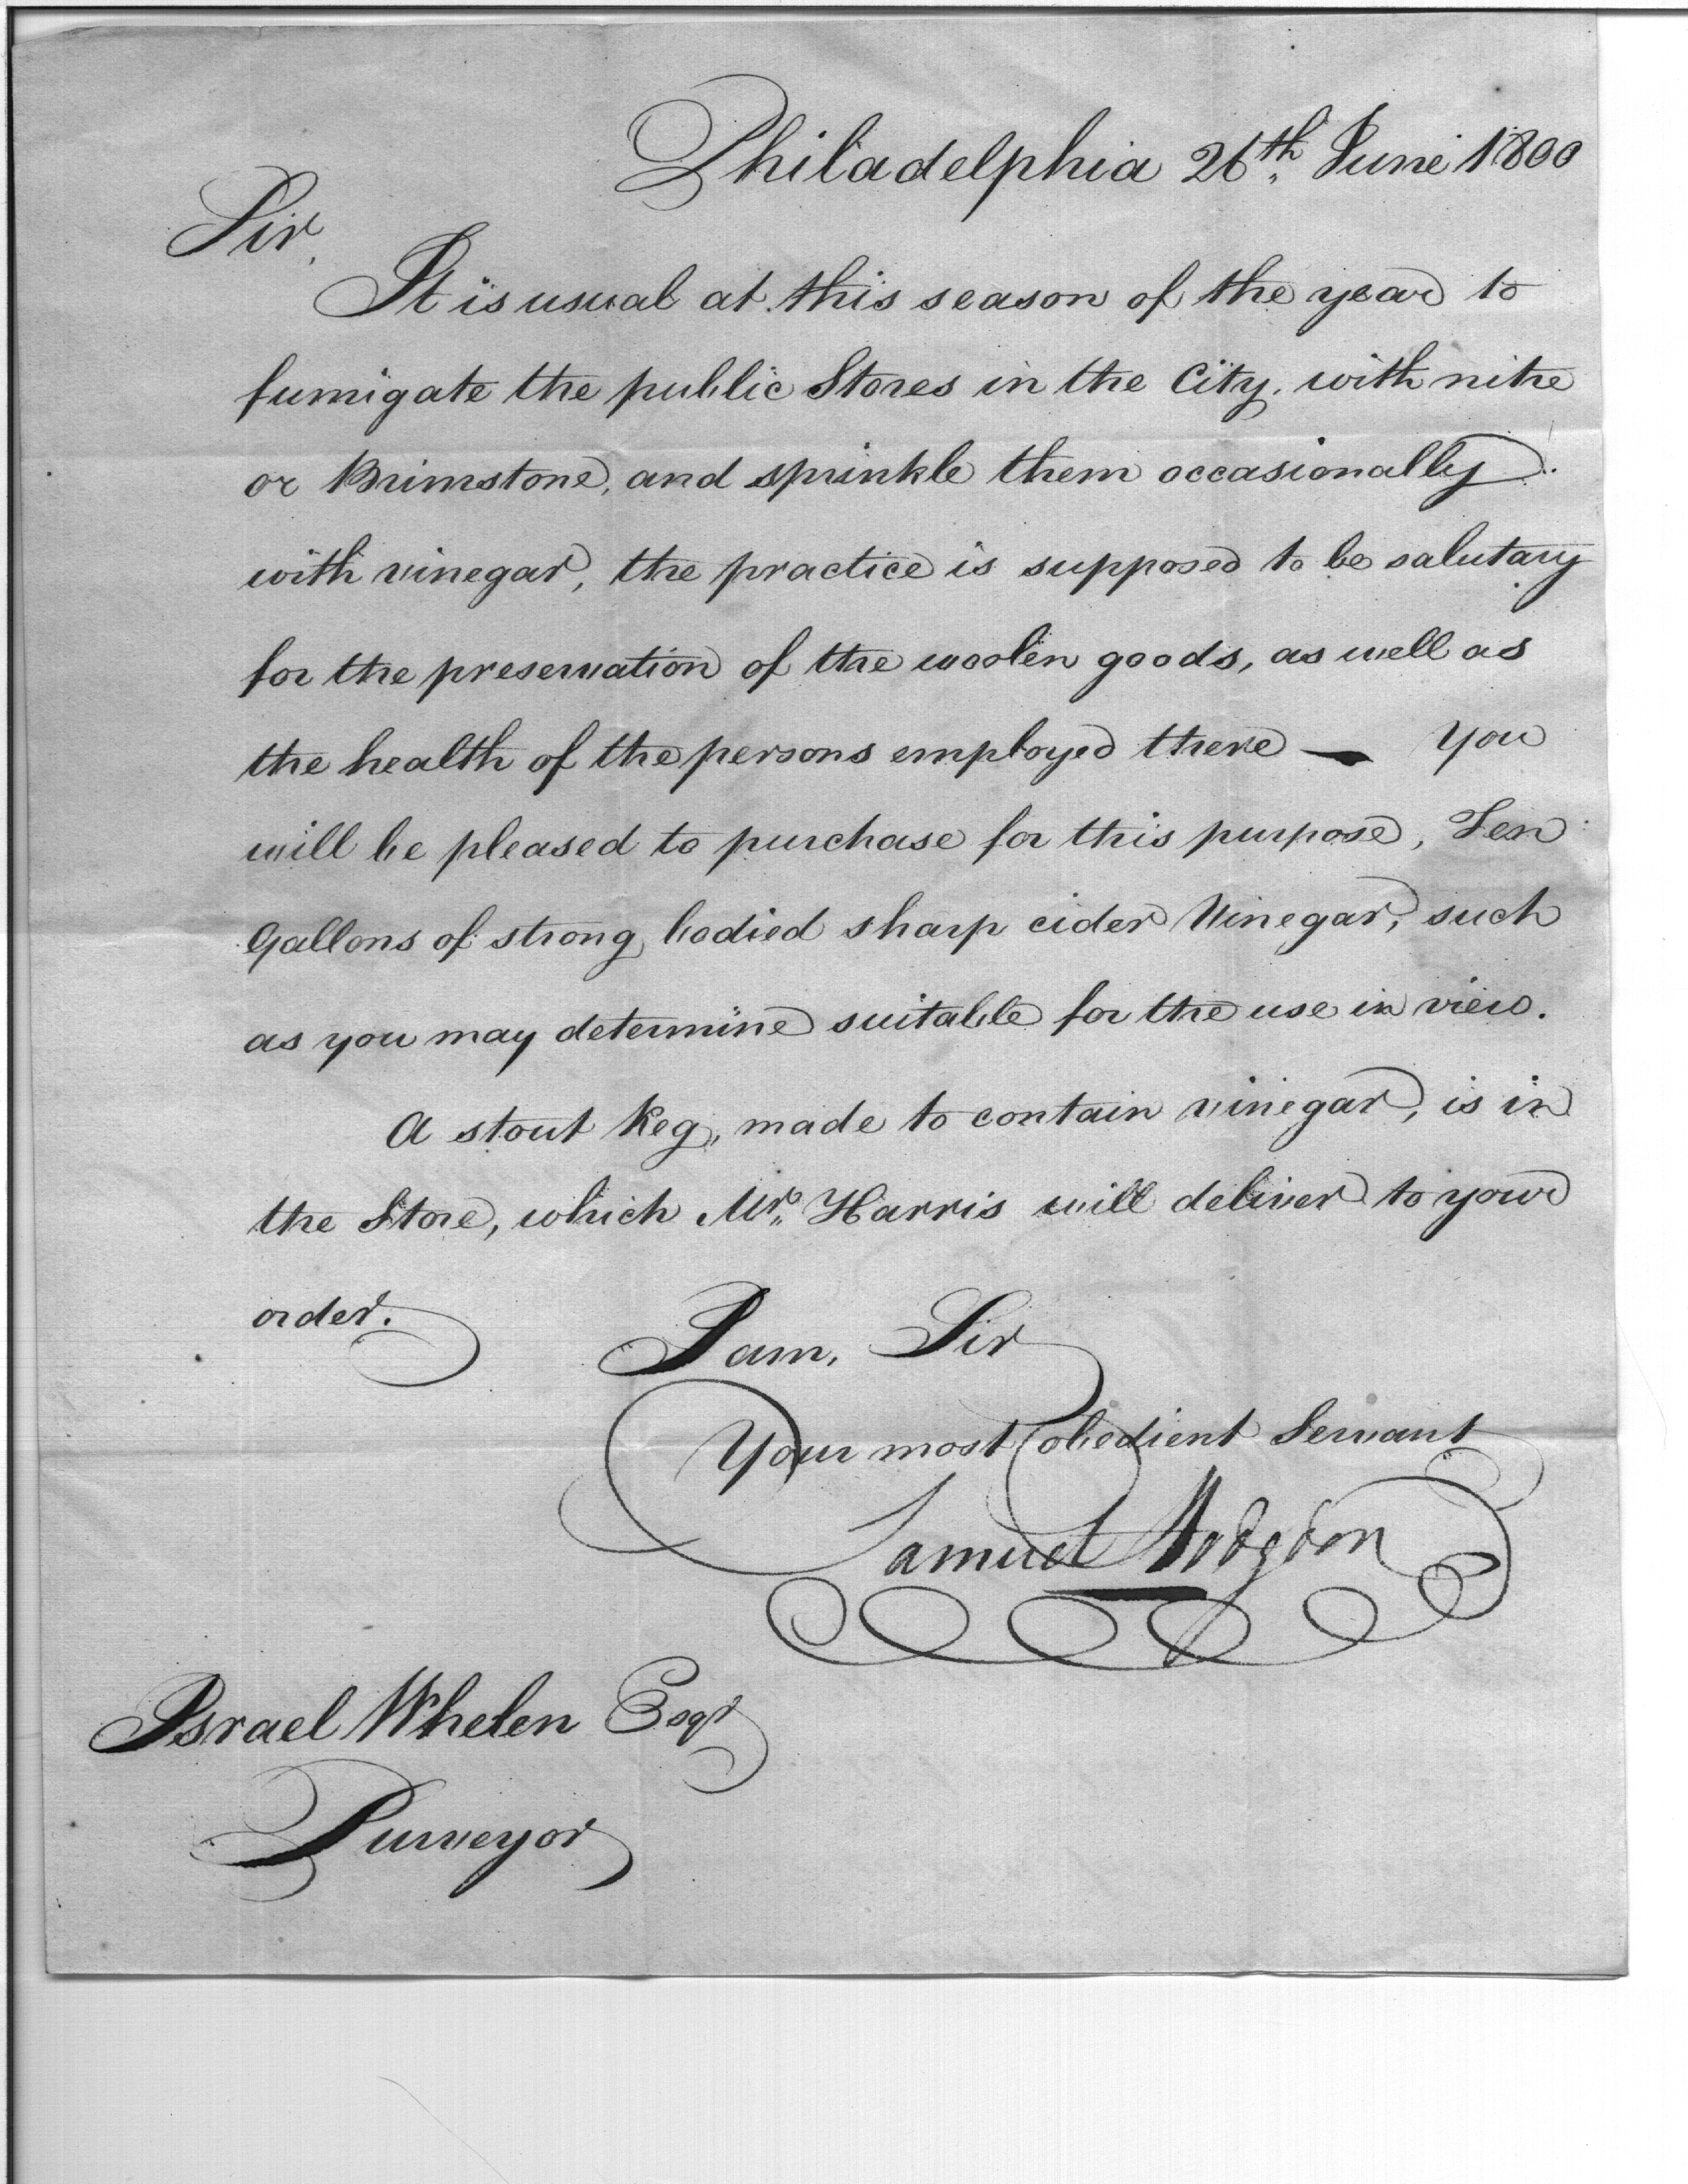 Philadelphia 26th June 1800
Sir,
It is usual at this season of the year to
fumigate the public Stores in the City, with nitre
or Brimstone, and sprinkle them occasionally
with vinegar, the practice is supposed to be salutary
for the preservation of the woolen goods, as well as
the health of the persons employed there — You
will be pleased to purchase for this purpose, Ten
Gallons of strong bodied sharp cider Vinegar, such
as you may determine suitable for the use in view.
A stout Keg, made to contain vinegar, is in
the Store, which Mr. Harris will deliver to your
order.
I am, Sir
Your most obedient Servant
Samuel Hodgdon
Israel Whelen Esqr
Purveyor